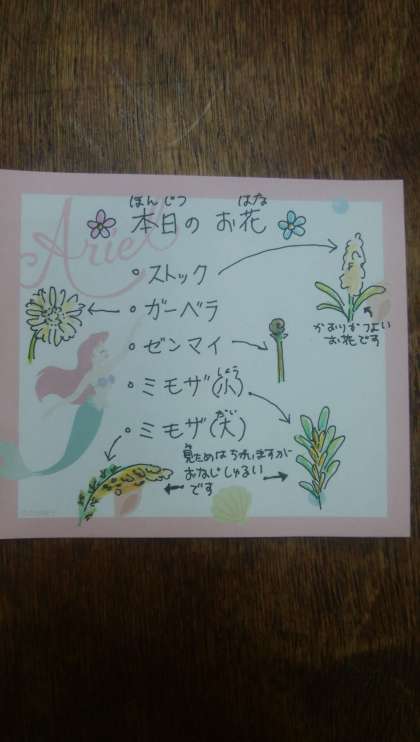 Ariel
ほんじつ はな
本日の お花
ストック
ガーベラ
かおりがつよい
お花です
ゼンマイ
しょう
ミモザ(小)
だい
ミモザ(大)
見ためはちがいますが
おなじしゅるい
です